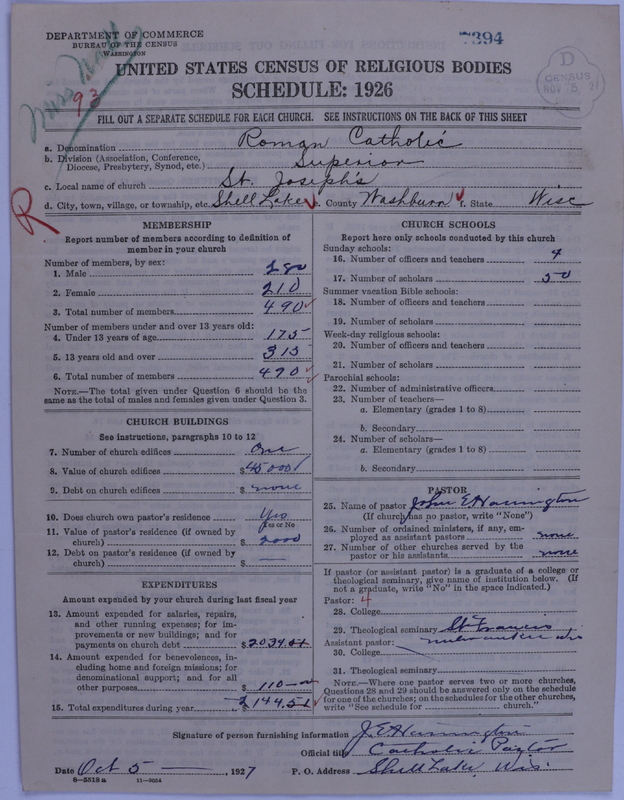 DEPARTMENT OF COMMERCE
BUREAU OF THE CENSUS
WASHINGTON
7394
93
D
CENSUS
UNITED STATES CENSUS OF RELIGIOUS BODIES
SCHEDULE: 1926
FILL OUT A SEPARATE SCHEDULE FOR EACH CHURCH. SEE INSTRUCTIONS ON THE BACK OF THIS SHEET
a. Denomination Roman Catholic
b. Division (Association, Conference, Diocese, Presbytery, Synod, etc.) Superior
c. Local name of church St. Joseph's
R
d. City, town, village, or township, etc. Shell Lake e. County Washburn f. State Wisc
MEMBERSHIP
Report number of members according to definition of
member in your church
Number of members, by sex:
1. Male 280
2. Female 210
3. Total number of members 490
Number of members under and over 13 years old:
4. Under 13 years of age 175
5. 13 years old and over 315
6. Total number of members 490
NOTE.—The total given under Question 6 should be the
same as the total of males and females given under Question 3.
CHURCH BUILDINGS
See instructions, paragraphs 10 to 12
7. Number of church edifices One
8. Value of church edifices $45000
9. Debt on church edifices $ none
10. Does church own pastor's residence Yes
Yes or No
11. Value of pastor's residence (if owned by
church) $ 2000
12. Debt on pastor's residence (if owned by
church) $ —
EXPENDITURES
Amount expended by your church during last fiscal year
13. Amount expended for salaries, repairs,
and other running expenses; for im-
provements or new buildings; and for
payments on church debt $2034.51
14. Amount expended for benevolences, in-
cluding home and foreign missions; for
denominational support; and for all
other purposes $ 110—
15. Total expenditures during year $2144.51
CHURCH SCHOOLS
Report here only schools conducted by this church
Sunday schools:
16. Number of officers and teachers 4
17. Number of scholars 50
Summer vacation Bible schools:
18. Number of officers and teachers
19. Number of scholars
Week-day religious schools:
20. Number of officers and teachers
21. Number of scholars
Parochial schools:
22. Number of administrative officers
23. Number of teachers—
a. Elementary (grades 1 to 8)
b. Secondary
24. Number of scholars—
a. Elementary (grades 1 to 8)
b. Secondary
PASTOR
25. Name of pastor John E Harrington
(If church has no pastor, write "None")
26. Number of ordained ministers, if any, em-
ployed as assistant pastors none
27. Number of other churches served by the
pastor or his assistants none
If pastor (or assistant pastor) is a graduate of a college or
theological seminary, give name of institution below. (If
not a graduate, write "No" in the space indicated.)
Pastor: 4
28. College
29. Theological seminary St Francis
Assistant pastor: Milwaukee Wis
30. College
31. Theological seminary
NOTE.—Where one pastor serves two or more churches,
Questions 28 and 29 should be answered only on the schedule
for one of the churches; on the schedules for the other churches,
write "See schedule for church."
Signature of person furnishing information J. E Harrington
Official title Catholic Pastor
Date Oct 5 —, 1927 P. O. Address Shell Lake, Wis.
8-5518a 11-9054